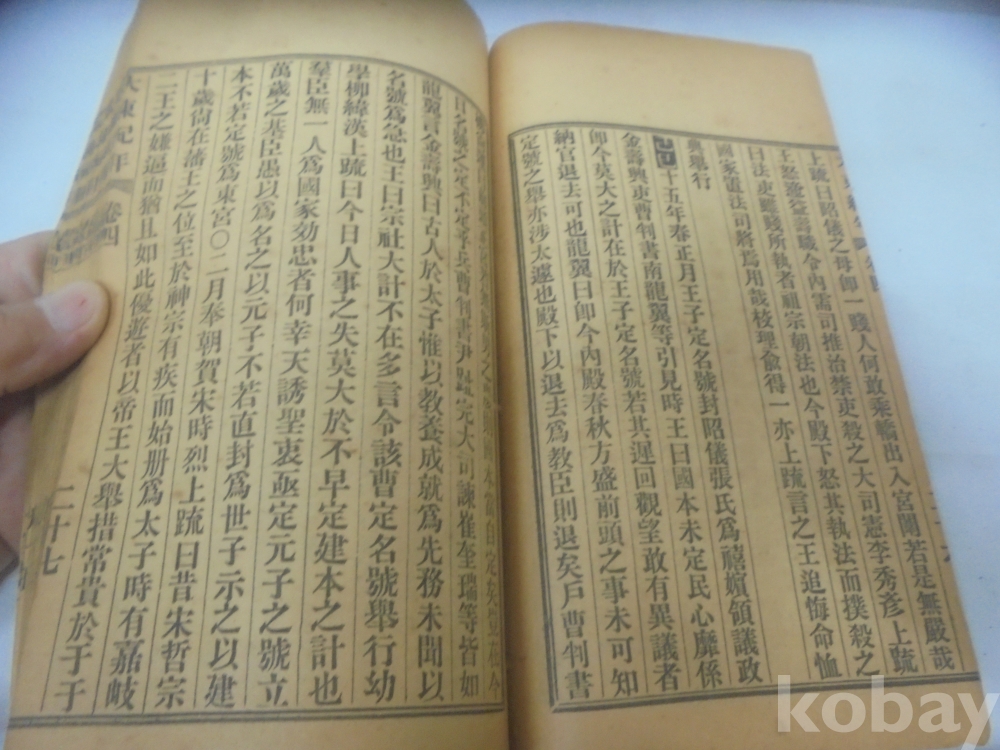 上䟽曰昭儀之母卽一賤人何敢乘轎出入宮闈若是無嚴哉
王怒遂益壽職令內需司推治禁吏殺之大司憲李秀彥上䟽
曰法吏雖賤所執者祖宗朝法也今殿下怒其執法而撲殺之
國家置法司將焉用哉校理兪得一亦上䟽言之王追悔命恤
典擧行
己巳十五年春正月王子定名號封昭儀張氏爲禧嬪領議政
金壽興吏曹判書南龍翼等引見時王曰國本未定民心靡係
卽今莫大之計在於王子定名號若其遲回觀望敢有異議者
納官退去可也龍翼曰卽今內殿春秋方盛前頭之事未可知
定號之擧亦涉太遽也殿下以退去爲敎臣則退矣戶曹判書
曰名號之定不定兵曹判書尹趾完大司諫崔奎瑞等皆如
龍翼言金壽興曰古人於太子惟以敎養成就爲先務未聞以
名號爲急也王曰宗社大計不在多言令該曹定名號擧行幼
學柳緯漢上䟽曰今日人事之失莫大於不早定建本之計也
羣臣無一人爲國家効忠者何幸天誘聖衷亟定元子之號立
萬歲之基臣愚以爲名之以元子不若直封爲世子示之以建
本不若定號爲東宮〇二月奉朝賀宋時烈上䟽曰昔宋哲宗
十歲尙在藩王之位至於神宗有疾而始册爲太子時有嘉岐
二王之嫌逼而猶且如此優遊者以帝王大擧措常貴於于于
大東紀年 卷四 二十七
kobay